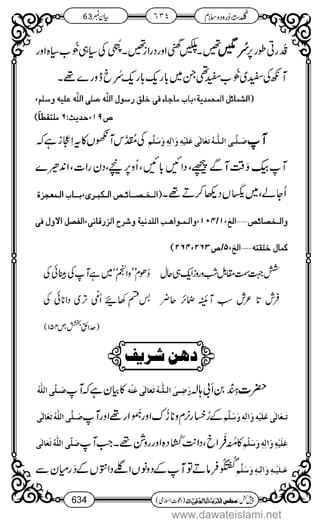 بیان نمبر 63
٦٣٤
گلدستۂ درود و سلام
قدرتی طور پر سُرمگیں تھیں۔ پلکیں گھنی اور دراز تھیں۔ پتلی کی سیاہی خوب سیاہ اور
آنکھ کی سفیدی خوب سفید تھی جن میں باریک باریک سُرخ ڈورے تھے۔
(الشمائل المحمدیة، باب ماجاء فی خلق رسول اللہ صلی اللہ علیه وسلم،
ص ١٩، حدیث: ٦ ملتقطاً)
آپ صَلَّی اللہُ تَعَالٰی عَلَیْہِ وَاٰلِہٖ وَسَلَّم کی مُقدَّس آنکھوں کا یہ اِعجاز ہے کہ
آپ بیک وقت آگے پیچھے، دائیں، بائیں، اُوپر، نیچے، دن، رات، اندھیرے،
اُجالے میں، یکساں دیکھا کرتے تھے۔ (الخصائص الکبری، باب المعجزة
والخصائص.....الخ، ١٠٤/١، والمواهب اللدنیة وشرح الزرقانی، الفصل الاول فی
کمال خلقته.....الخ، ٥/ص ٢٦٣، ٢٦٤)
شش جہت سمت مقابل شب و روز ایک ہی حال
دھوم ”وَالنَّجْم“ میں ہے آپ کی بینائی کی
فرش تا عرش سب آئینہ ضمائر حاضر
بس قسم کھائیے اُمّی تری دانائی کی
(حدائق بخشش، ص ١٥٤)
دھن شریف
حضرت ہند بن اَبی ہالہ رَضِیَ اللہُ تَعَالٰی عَنْہُ کا بیان ہے کہ آپ صَلَّی اللہُ
تَعَالٰی عَلَیْہِ وَاٰلِہٖ وَسَلَّم کے رُخسار نرم و نازک اور ہموار تھے اور آپ صَلَّی اللہُ تَعَالٰی
عَلَیْہِ وَاٰلِہٖ وَسَلَّم کا مُنہ فَراخ، دانت کُشادہ اور روشن تھے۔ جب آپ صَلَّی اللہُ تَعَالٰی
عَلَیْہِ وَاٰلِہٖ وَسَلَّم گفتگو فرماتے تو آپ کے دونوں اگلے دانتوں کے درمیان سے
634
پیش کش: مجلس المدینۃ العلمیۃ (دعوتِ اسلامی)
www.dawateislami.net